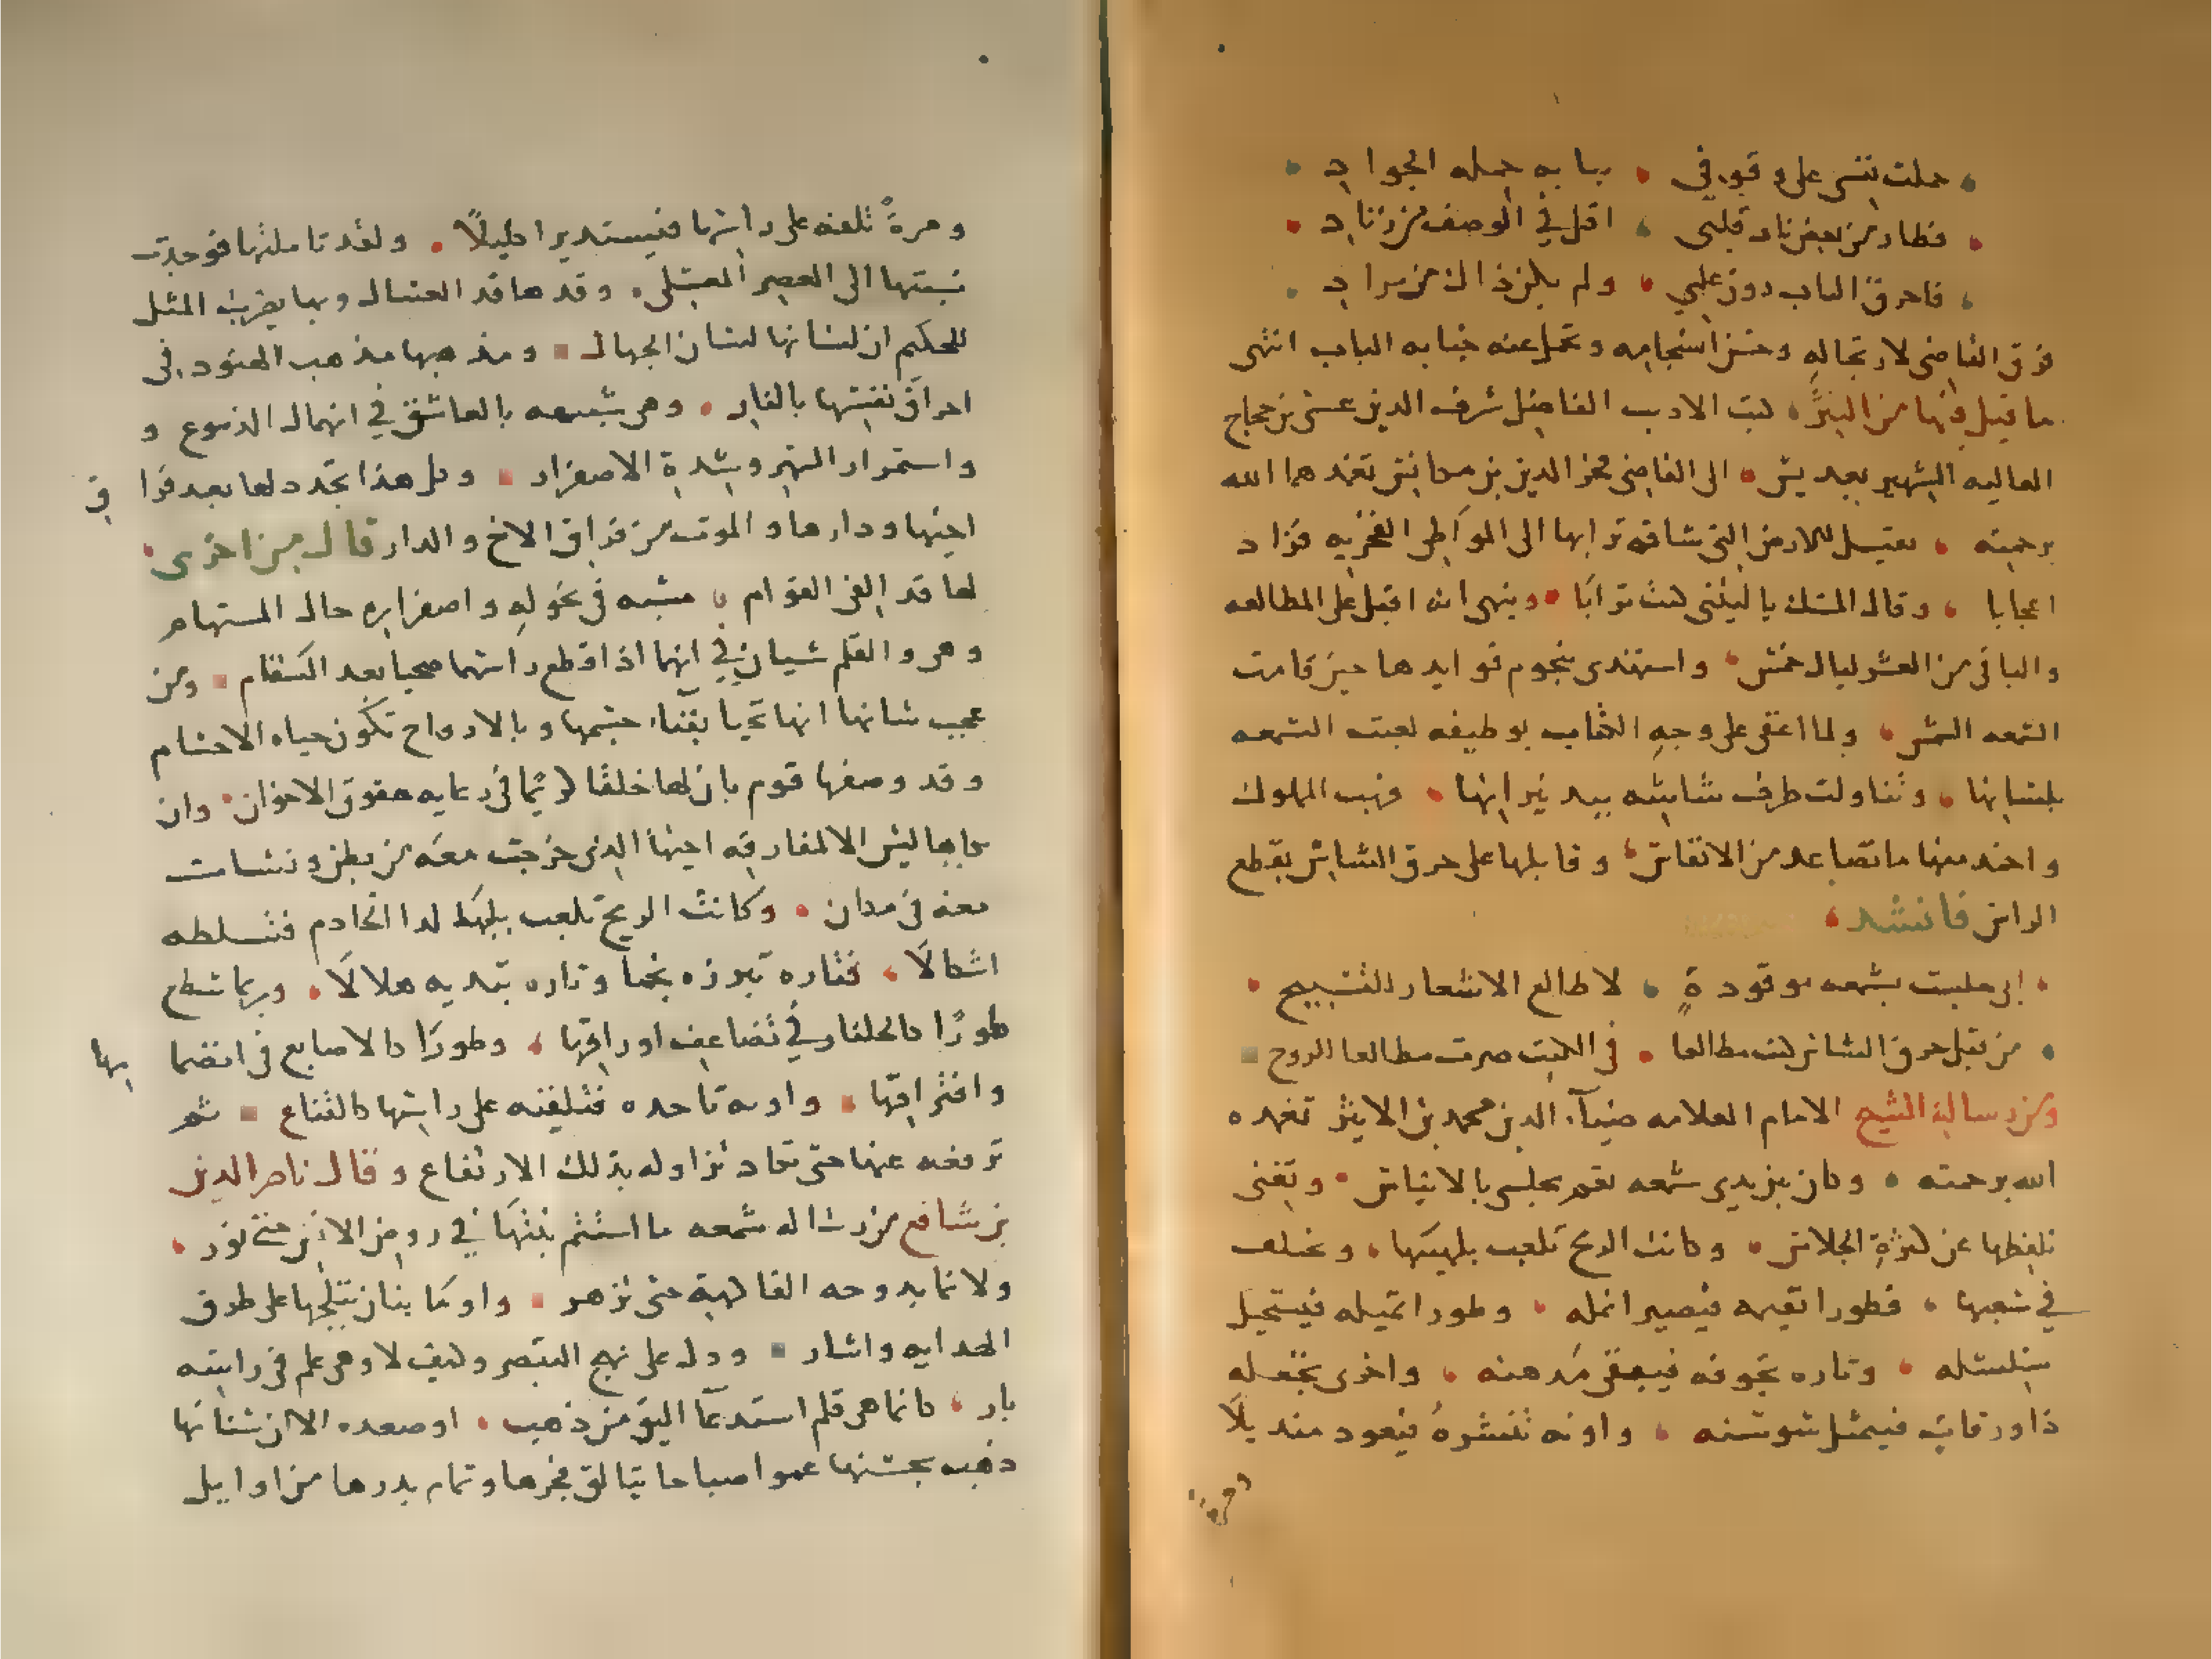 حملت نفسى على وقوفي ، ببابه حمله الجواد
فطار من بعض نار قلبى ، اقل في الوصف من زناد
فاحرق الباب دون علمي ، ولم يكن ذاك من مرادِ
فرق القاضى لارتجالهِ وحسن انسجامه وتحمل عنه جنايه الباب انتهى
ما قيل فيها من النثر ، كتب الاديب الفاضل شرف الدين عيسى بن حجاج
العاليه الشهير بعديس ، الى القاضى فخر الدين بن مكانس تغمدهما الله
برحمته ، يقبل الارض التى شاقه ترابها الى المواطى الفخريه فزاد
اعجابا ، وقال المسك يا ليتنى كنت ترابًا ، وينهى انه اقبل على المطالعه
والباقى من العشر ليال خمس ، واستهدى بنجوم فوايدها حين قامت
الشمعه الشمس ، ولما اغفى على وجهِ الكتاب بوظيفه لعبت الشمعه
بلسانها ، وتناولت طرف شاشه بيد نيرانها ، فهب المملوك
واخمد منها ما تصاعد من الانفاس ، وقابلها على حرق الشاش بقطع
الراس فانشد ،
انى بليت بشمعه موقودةٍ ، لاطالع الاشعار للتسبيح
من قبل حرق الشاش كنت مطالعا ، في الكتب صرت مطالعا للروح
ومن رسالة الشيخ الامام العلامه ضيآء الدين محمد بن الاثير تغمده
الله برحمته ، وكان بين يدى شمعه تعم مجلسى بالايناس ، وتغنى
بلفظها عن كثرةِ الجلاس ، وكانت الريح تلعب بلهبها ، وتختلف
في شعبها ، فطورا تقيمه فيصير انمله ، وطورا تميله فيستحيل
سلسله ، وتاره تجوفه فيبقى مدهنه ، واخرى تجعله
ذا ورقات فيمثل سوسنه ، واونه تنشرهُ فيعود منديلًا
ومرةً
ومرةً تلفه على راسها فيستدير اكليلًا ، ولقد تاملتها فوجدت
نسبتها الى العصر العسلى ، وقدها قد العسال وبها يضرب المثل
للحكيم ان لسانها لسان الجهال ومذهبها مذهب الهنود فى
احراق نفسها بالنار ، وهى شبيهه بالعاشق في انهمال الدموع و
واستمرار السهر وشدة الاصفرار وكل هذا تجدد لها بعد فراق
اخيها ودارها والموت من فراق الاخ والدار قال من اخرى ،
لها قد الف القوام ، مشبه فى نحولهِ واصفرارهِ حال المستهام
وهى والقلم سيان في انهما اذا قطع راسهما صحيا بعد السقام ومن
عجب شانها انها تحيا بفناء جسمها وبالارواح تكون حياه الاجسام
وقد وصفها قوم بان لها خلقا كريمًا فى رعايه حقوق الاخوان ، وان
بكاها ليس الا لمفارقه اخيها الذى خرجت معه من بطن ونشات
معه فى مكان ، وكانت الريح تلعب بلهبها لدا الخادم فتسلطه
اشكالًا ، فتاره تبرزه نجمًا وتاره تبديه هلالًا ، وربما سطع
طورًا كالجلنار في تضاعيف اوراقها ، وطورًا كالاصابع فى انضمامها
وافتراقها ، واونه تاخده فتلفه على راسها كالقناع ثم
ترفعه عنها حتى تكاد تزاوله بذلك الارتفاع وقال ناصر الدين
بن شافع من رساله شمعه ما استتم نبتها في روض الانس حتى نور ،
ولا نما بدوحه الفاكهة حتى ازهر واوما بنان تبلجها على طرق
الهدايه واشار ودل على نهج التبصر وكيف لا وهى علم فى راسه
نار ، كانما هى قلم استمد من ذهب ، او صعده الا ان سنانها
ذهب بحسنها عموا صباحا بتالق فجرها وتمام بدرها من اوايل